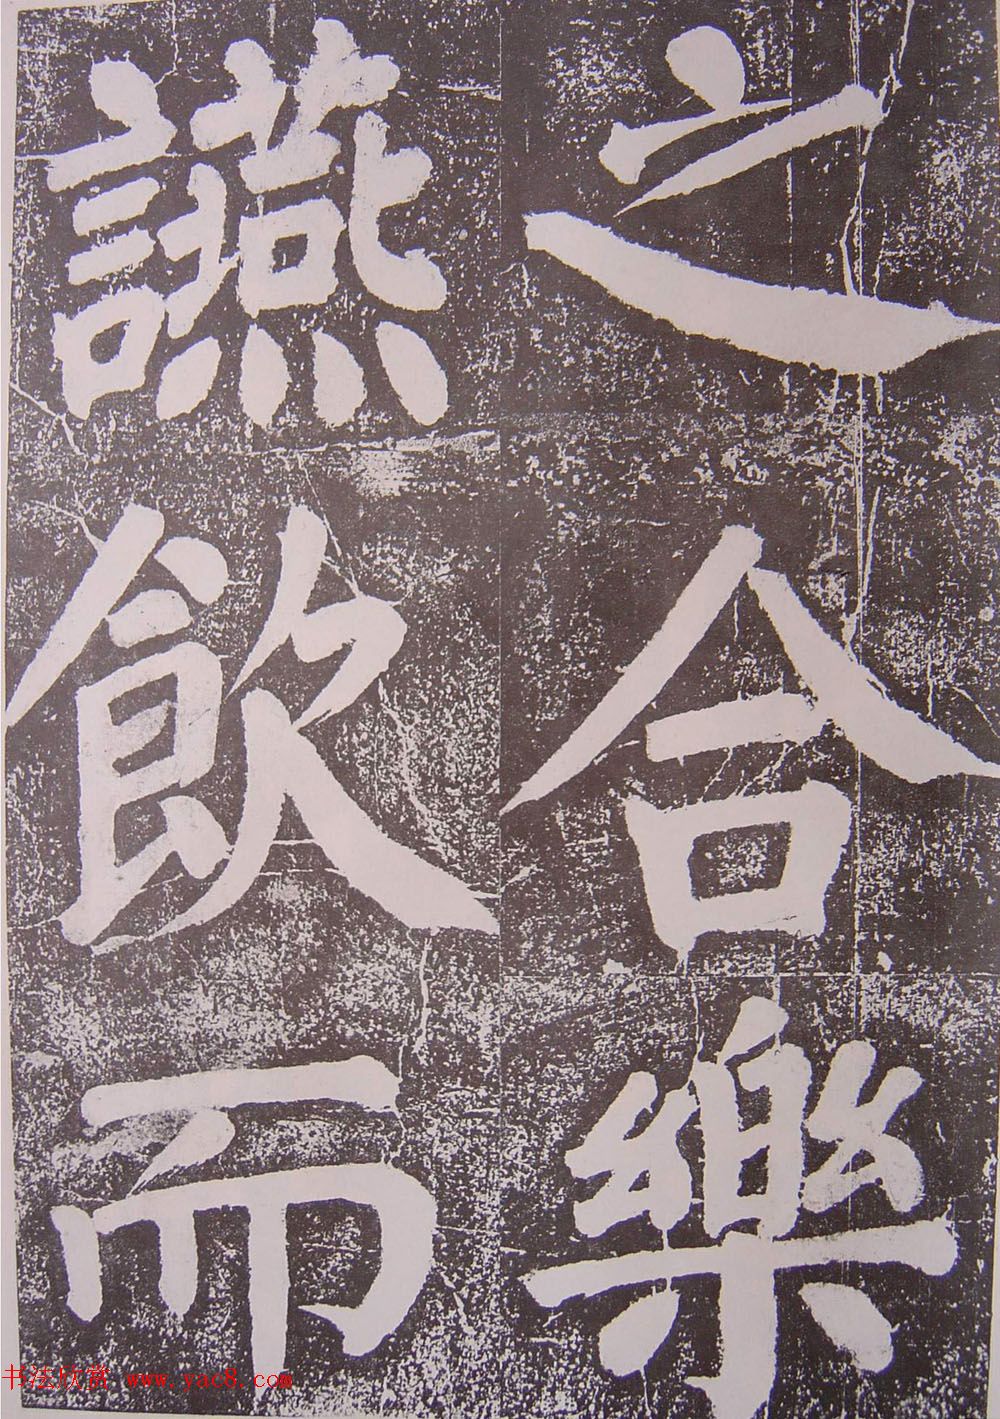 之合樂
讌飲而
书法欣赏 www.yac8.com